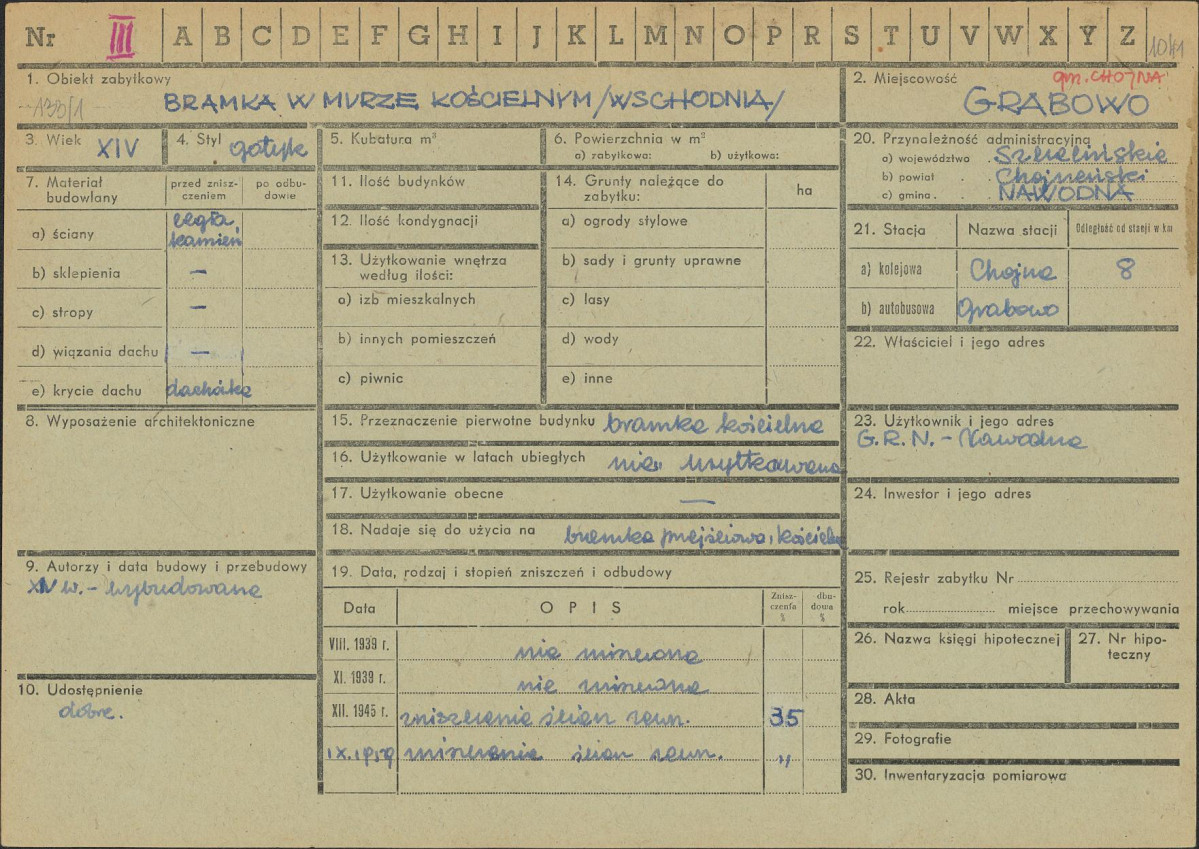 Nr III A B C D E F G H I J K L M N O P R S T U V W X Y Z
1. Obiekt zabytkowy
BRAMKA W MURZE KOŚCIELNYM /WSCHODNIA/
2. Miejscowość gm. CHOJNA
GRABOWO
3. Wiek XIV
4. Styl gotyk
5. Kubatura m³
6. Powierzchnia w m²
a) zabytkowa: b) użytkowa:
20. Przynależność administracyjna
a) województwo Szczecińskie
b) powiat Chojneński
c) gmina NAWODNA
7. Materiał budowlany
przed zniszczeniem
po odbudowie
a) ściany cegła, kamień
b) sklepienia —
c) stropy —
d) wiązania dachu —
e) krycie dachu dachówka
11. Ilość budynków
12. Ilość kondygnacji
13. Użytkowanie wnętrza
według ilości:
a) izb mieszkalnych
b) innych pomieszczeń
c) piwnic
14. Grunty należące do
zabytku:
ha
a) ogrody stylowe
b) sady i grunty uprawne
c) lasy
d) wody
e) inne
21. Stacja Nazwa stacji Odległość od stacji w km
a) kolejowa Chojna 8
b) autobusowa Grabowo
22. Właściciel i jego adres
8. Wyposażenie architektoniczne
15. Przeznaczenie pierwotne budynku bramka kościelna
16. Użytkowanie w latach ubiegłych nie użytkowana
17. Użytkowanie obecne —
18. Nadaje się do użycia na bramka przejściowa, kościelna
23. Użytkownik i jego adres
G.R.N. - Nawodna
24. Inwestor i jego adres
9. Autorzy i data budowy i przebudowy
XIV w. - wybudowana
10. Udostępnienie
dobre.
19. Data, rodzaj i stopień zniszczeń i odbudowy
Data OPIS
VIII. 1939 r. nie zniszczona
XI. 1939 r. nie zniszczona
XII. 1945 r. zniszczenia ścian zewn. 35
IX. 1959 zniszczenia ścian zewn. "
25. Rejestr zabytku Nr
rok miejsce przechowywania
26. Nazwa księgi hipotecznej
27. Nr hipoteczny
28. Akta
29. Fotografie
30. Inwentaryzacja pomiarowa